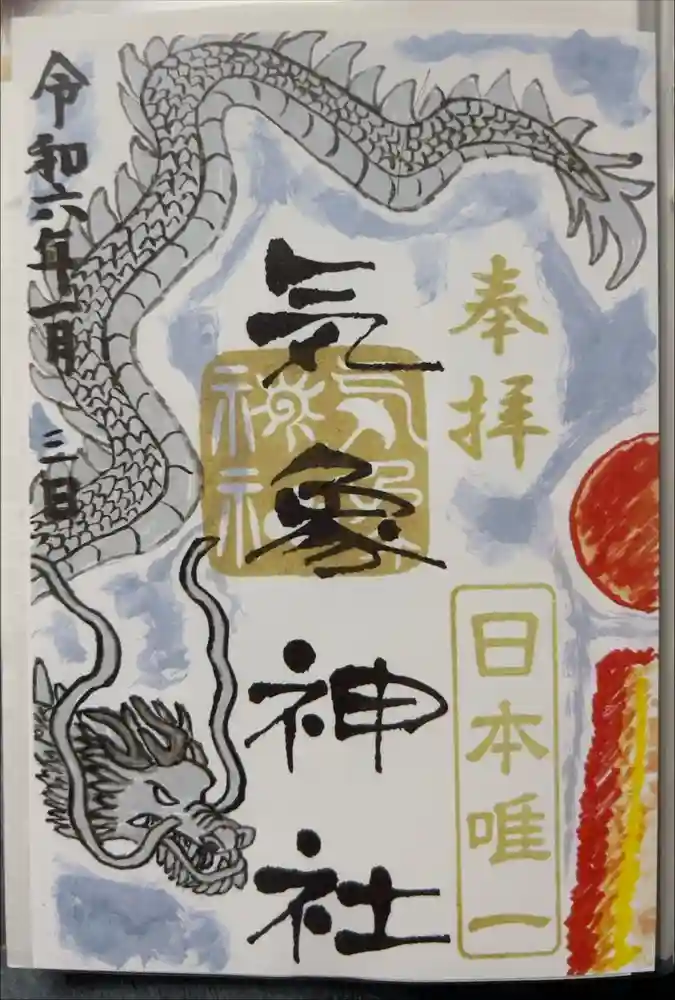 奉拝
日本唯一
気象神社
気象
神社
令和六年一月三日